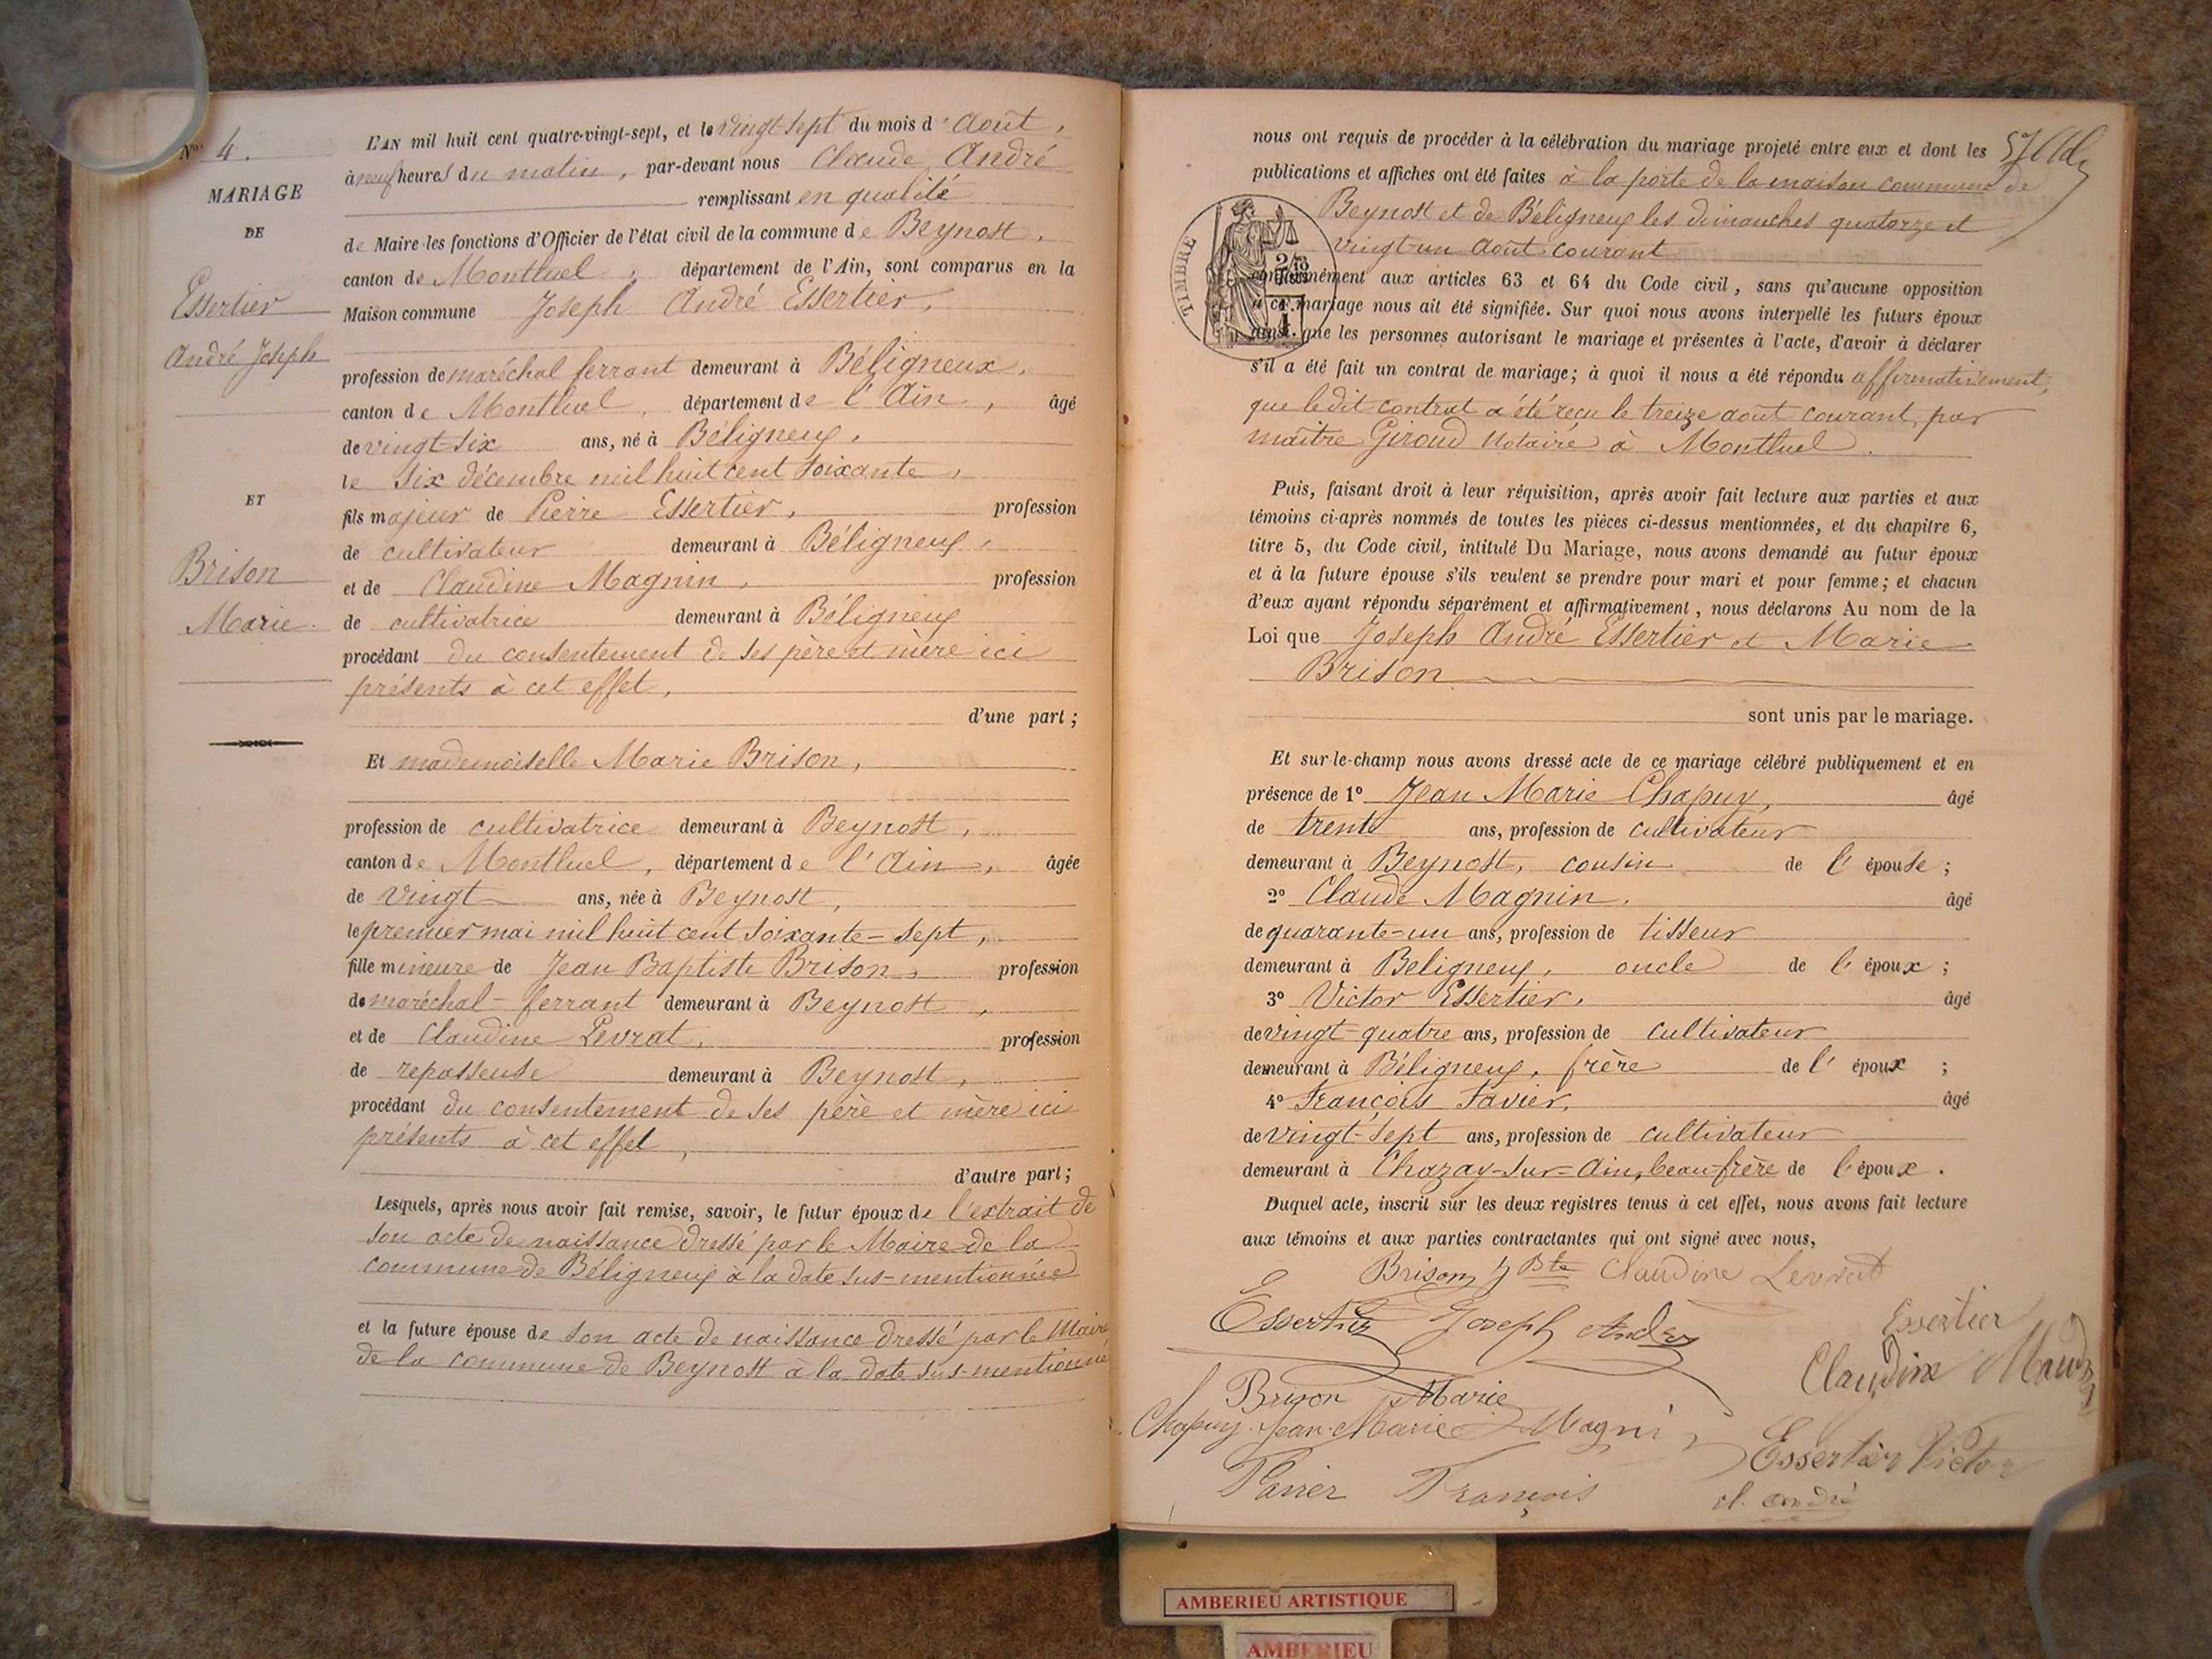 No 4.
MARIAGE
DE
Essertier
André Joseph
ET
Brison
Marie.
L'AN mil huit cent quatre-vingt-sept, et le vingt-sept du mois d'Août,
à neuf heures du matin, par-devant nous Claude André
remplissant en qualité
de Maire les fonctions d'Officier de l'état civil de la commune de Beynost,
canton de Montluel, département de l'Ain, sont comparus en la
Maison commune Joseph André Essertier,
profession de maréchal ferrant demeurant à Béligneux,
canton de Montluel, département de l'Ain, âgé
de vingt-six ans, né à Béligneux,
le six décembre mil huit cent soixante,
fils majeur de Pierre Essertier, profession
de cultivateur demeurant à Béligneux,
et de Claudine Magnin, profession
de cultivatrice demeurant à Béligneux
procédant du consentement de ses père et mère ici
présents à cet effet,
d'une part;
Et mademoiselle Marie Brison,
profession de cultivatrice demeurant à Beynost,
canton de Montluel, département de l'Ain, âgée
de vingt ans, née à Beynost,
le premier mai mil huit cent soixante-sept,
fille mineure de Jean Baptiste Brison, profession
de maréchal-ferrant demeurant à Beynost,
et de Claudine Levrat, profession
de repasseuse demeurant à Beynost,
procédant du consentement de ses père et mère ici
présents à cet effet,
d'autre part;
Lesquels, après nous avoir fait remise, savoir, le futur époux de l'extrait de
son acte de naissance dressé par le Maire de la
commune de Béligneux à la date sus-mentionnée
et la future épouse de son acte de naissance dressé par le Maire
de la commune de Beynost à la date sus-mentionnée
nous ont requis de procéder à la célébration du mariage projeté entre eux et dont les
publications et affiches ont été faites à la porte de la maison commune de
Beynost et de Béligneux les dimanches quatorze et
vingt-un août courant
TIMBRE
conformément aux articles 63 et 64 du Code civil, sans qu'aucune opposition
à ce mariage nous ait été signifiée. Sur quoi nous avons interpellé les futurs époux
ainsi que les personnes autorisant le mariage et présentes à l'acte, d'avoir à déclarer
s'il a été fait un contrat de mariage; à quoi il nous a été répondu affirmativement,
que le dit contrat a été reçu le treize août courant, par
maître Giroud notaire à Montluel.
Puis, faisant droit à leur réquisition, après avoir fait lecture aux parties et aux
témoins ci-après nommés de toutes les pièces ci-dessus mentionnées, et du chapitre 6,
titre 5, du Code civil, intitulé Du Mariage, nous avons demandé au futur époux
et à la future épouse s'ils veulent se prendre pour mari et pour femme; et chacun
d'eux ayant répondu séparément et affirmativement, nous déclarons Au nom de la
Loi que Joseph André Essertier et Marie
Brison
sont unis par le mariage.
Et sur-le-champ nous avons dressé acte de ce mariage célébré publiquement et en
présence de 1º Jean Marie Chapuy, âgé
de trente ans, profession de cultivateur
demeurant à Beynost, cousin de l'épouse;
2º Claude Magnin, âgé
de quarante-un ans, profession de tisseur
demeurant à Beligneux, oncle de l'époux;
3º Victor Essertier, âgé
de vingt-quatre ans, profession de cultivateur
demeurant à Béligneux, frère de l'époux;
4º François Favier, âgé
de vingt-sept ans, profession de cultivateur
demeurant à Chazay-sur-Ain, beau-frère de l'époux.
Duquel acte, inscrit sur les deux registres tenus à cet effet, nous avons fait lecture
aux témoins et aux parties contractantes qui ont signé avec nous,
Brison J Bte Claudine Levrat
Essertier Joseph André
Essertier
Claudine
Brison Marie
Chapuy Jean-Marie Magnin
Essertier Victor
François
cl. andré
AMBERIEU ARTISTIQUE
AMBERIEU